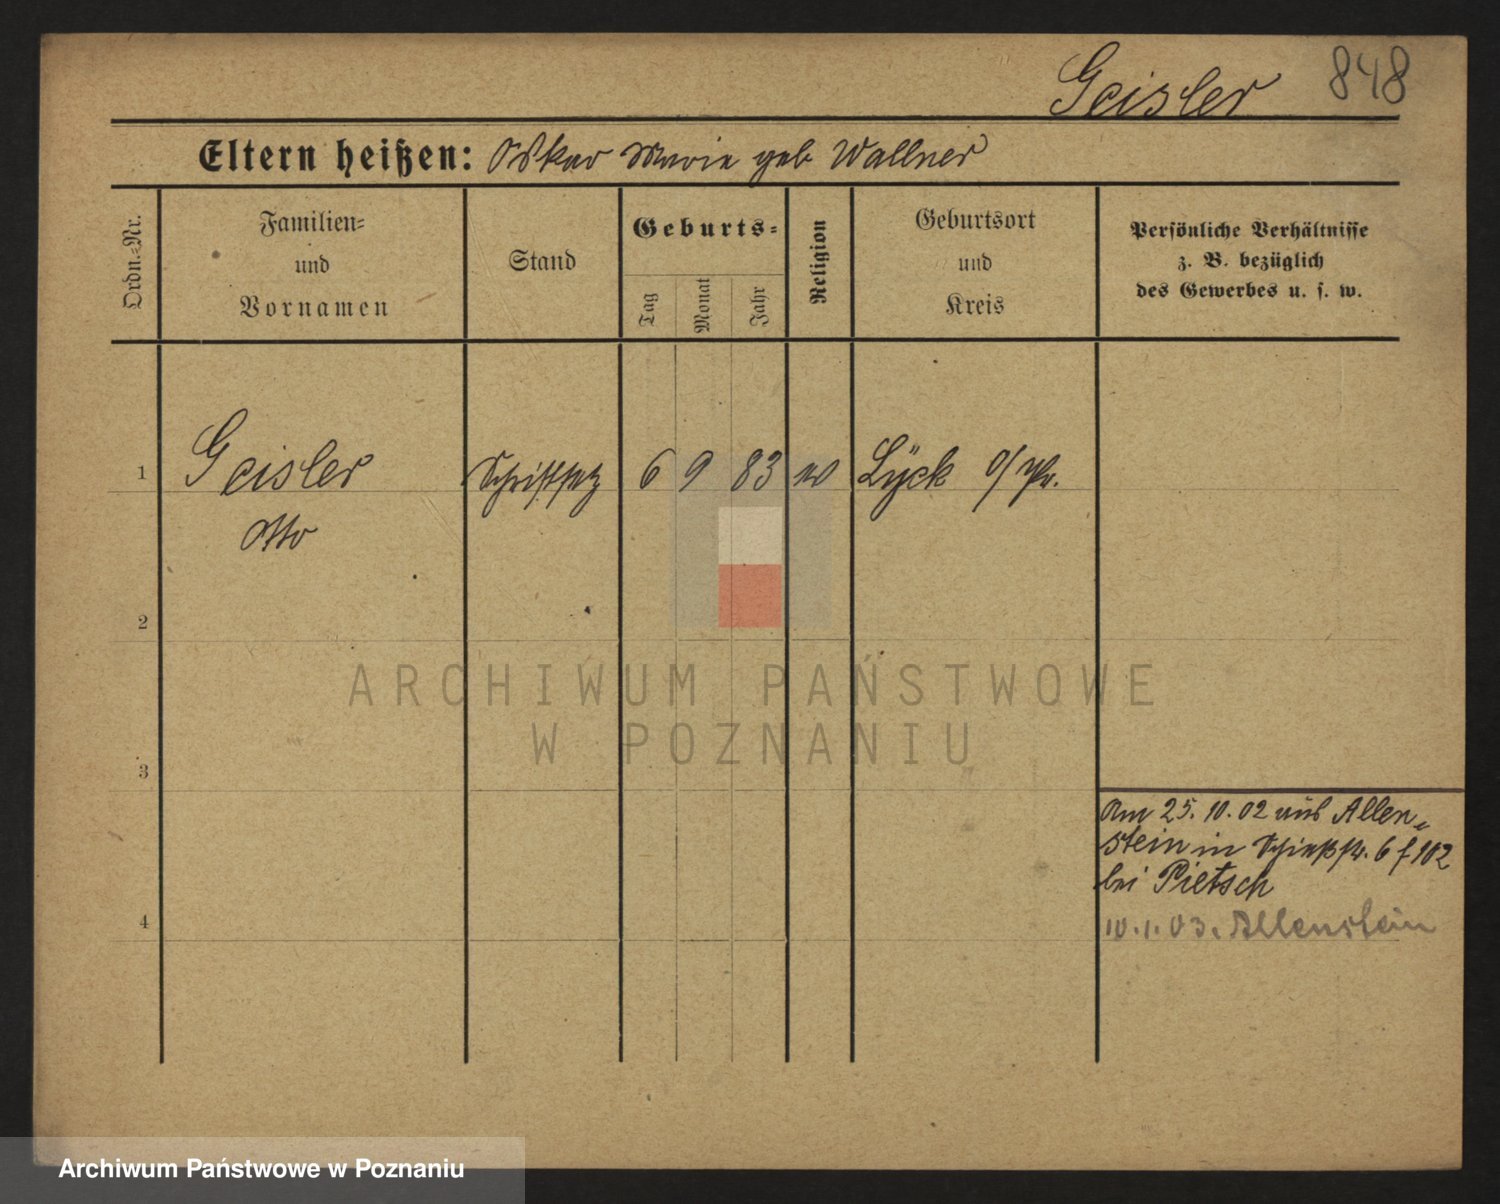 Geisler 848
Eltern heißen: Oskar Marie geb Wallner
Ordn.-Nr.
Familien-
und
Vornamen
Stand
Geburts-
Tag
Monat
Jahr
Religion
Geburtsort
und
Kreis
Persönliche Verhältnisse
z. B. bezüglich
des Gewerbes u. s. w.
1 Geisler Schriftsetz 6 9 83 Lyck O/Pr.
Otto
2
ARCHIWUM PAŃSTWOWE
W POZNANIU
3
Am 25. 10. 02 aus Allen-
stein in Schießstr. 6 f 102
bei Pietsch
4 10.1.03. Allenstein
Archiwum Państwowe w Poznaniu